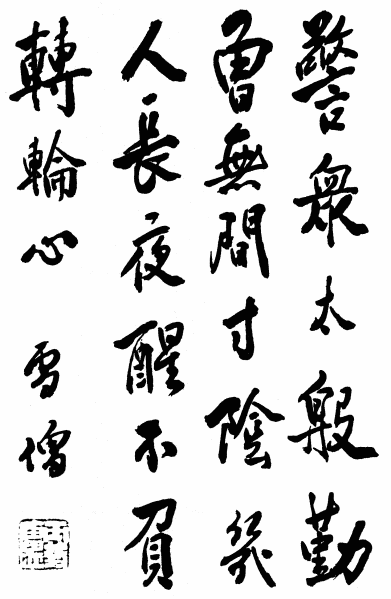 警眾太殷勤
曾無間寸陰幾
人長夜醒不負
轉輪心 雪僧